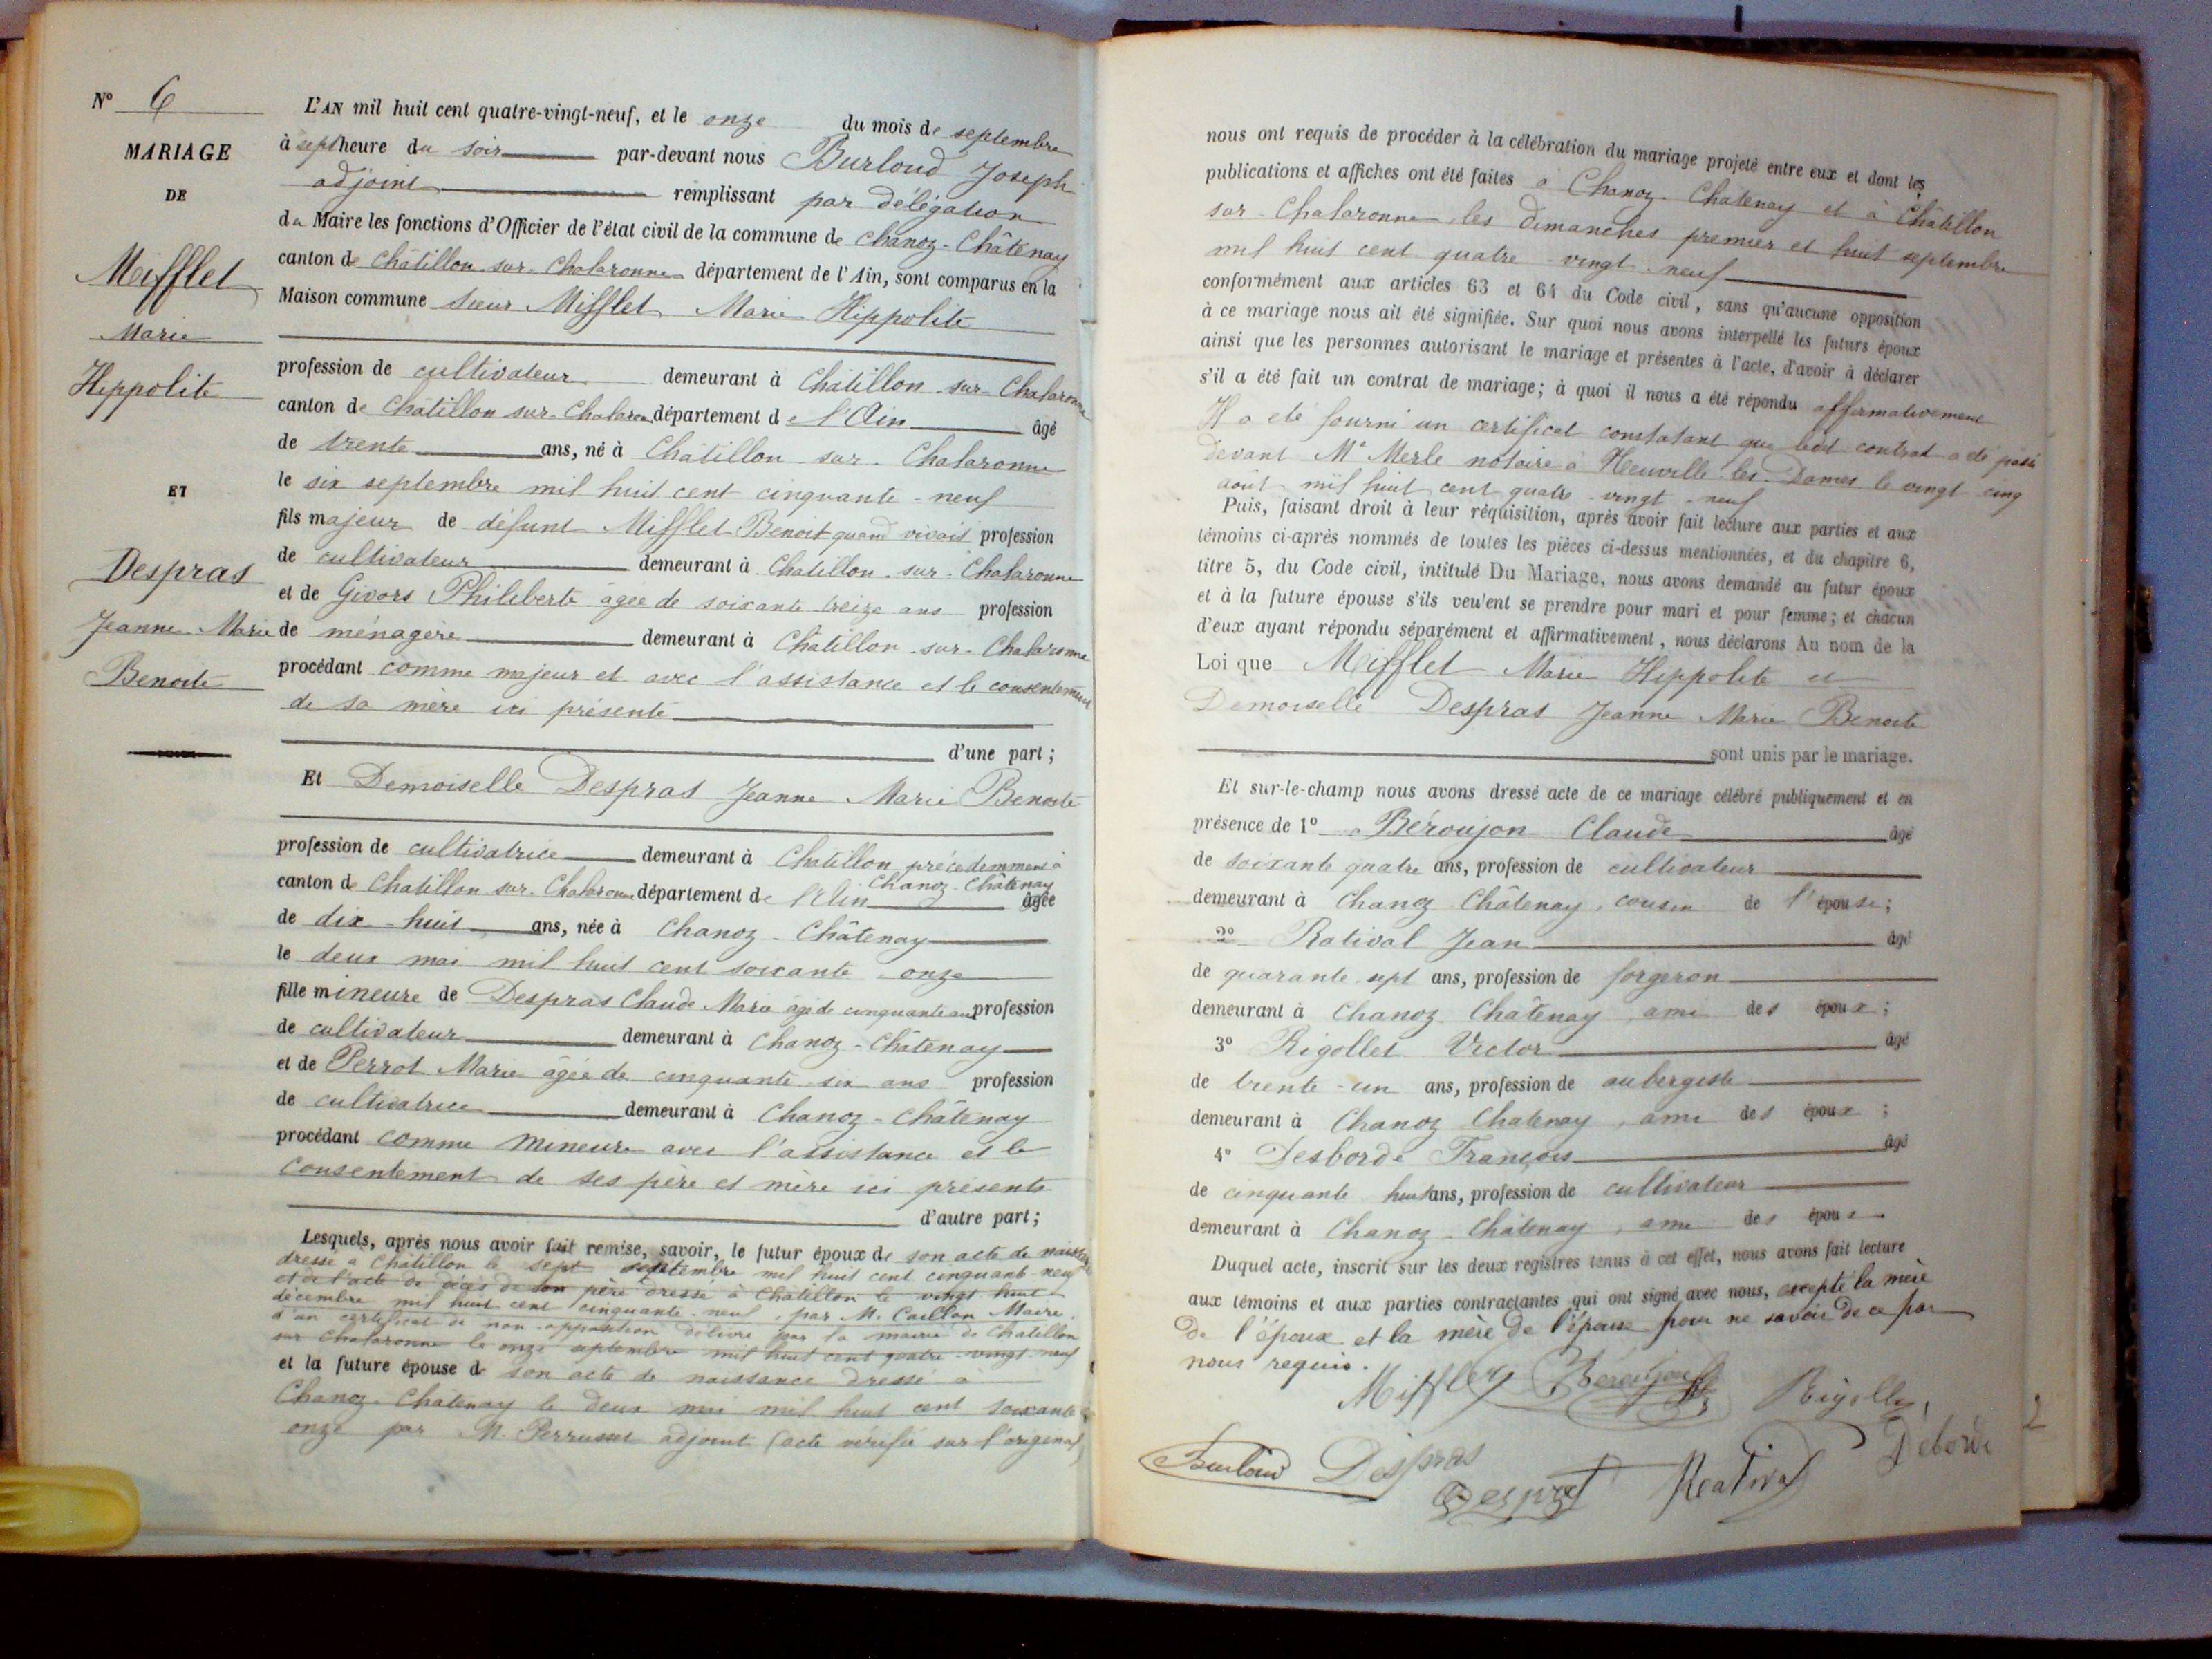 N° 6
MARIAGE
DE
Mifflet
Marie
Hippolite
ET
Despras
Jeanne Marie
Benoite
L'AN mil huit cent quatre-vingt-neuf, et le onze du mois de septembre
à sept heure du soir par-devant nous Burloud Joseph
adjoint remplissant par délégation
du Maire les fonctions d'Officier de l'état civil de la commune de Chanoz-Châtenay
canton de Châtillon-sur-Chalaronne département de l'Ain, sont comparus en la
Maison commune sieur Mifflet Marie Hippolite
profession de cultivateur demeurant à Châtillon-sur-Chalaronne
canton de Châtillon sur-Chalaronne département de l'Ain âgé
de trente ans, né à Châtillon sur-Chalaronne
le six septembre mil huit cent cinquante-neuf
fils majeur de défunt Mifflet Benoit quand vivait profession
de cultivateur demeurant à Châtillon-sur-Chalaronne
et de Givors Philiberte âgée de soixante treize ans profession
de ménagère demeurant à Châtillon-sur-Chalaronne
procédant comme majeur et avec l'assistance et le consentement
de sa mère ici présente
d'une part;
Et Demoiselle Despras Jeanne Marie Benoite
profession de cultivatrice demeurant à Châtillon précédemment à
Chanoz-Châtenay
canton de Châtillon-sur-Chalaronne département de l'Ain âgée
de dix-huit ans, née à Chanoz-Châtenay
le deux mai mil huit cent soixante-onze
fille mineure de Despras Claude Marie âgé de cinquante ans profession
de cultivateur demeurant à Chanoz-Châtenay
et de Perrot Marie âgée de cinquante-six ans profession
de cultivatrice demeurant à Chanoz-Châtenay
procédant comme mineure avec l'assistance et le
consentement de ses père et mère ici présents
d'autre part;
Lesquels, après nous avoir fait remise, savoir, le futur époux de son acte de naissance
dressé à Châtillon le sept septembre mil huit cent cinquante-neuf
et de l'acte de décès de son père dressé à Châtillon le vingt huit
décembre mil huit cent cinquante-neuf, par M. Caillon Maire
d'un certificat de non-opposition délivré par la mairie de Châtillon
sur Chalaronne le onze septembre mil huit cent quatre-vingt-neuf
et la future épouse de son acte de naissance dressé à
Chanoz-Châtenay le deux mai mil huit cent soixante
onze par M. Perrusset adjoint (acte vérifié sur l'original)
nous ont requis de procéder à la célébration du mariage projeté entre eux et dont les
publications et affiches ont été faites à Chanoz-Chatenay et à Châtillon
sur-Chalaronne, les dimanches premier et huit septembre
mil huit cent quatre-vingt-neuf
conformément aux articles 63 et 64 du Code civil, sans qu'aucune opposition
à ce mariage nous ait été signifiée. Sur quoi nous avons interpellé les futurs époux
ainsi que les personnes autorisant le mariage et présentes à l'acte, d'avoir à déclarer
s'il a été fait un contrat de mariage; à quoi il nous a été répondu affirmativement
Il a été fourni un certificat constatant que ledit contrat a été passé
devant Me Merle notaire à Neuville-les-Dames le vingt-cinq
août mil huit cent quatre-vingt-neuf
Puis, faisant droit à leur réquisition, après avoir fait lecture aux parties et aux
témoins ci-après nommés de toutes les pièces ci-dessus mentionnées, et du chapitre 6,
titre 5, du Code civil, intitulé Du Mariage, nous avons demandé au futur époux
et à la future épouse s'ils veulent se prendre pour mari et pour femme; et chacun
d'eux ayant répondu séparément et affirmativement, nous déclarons Au nom de la
Loi que Mifflet Marie Hippolite et
Demoiselle Despras Jeanne Marie Benoite
sont unis par le mariage.
Et sur-le-champ nous avons dressé acte de ce mariage célébré publiquement et en
présence de 1° Béroujon Claude âgé
de soixante quatre ans, profession de cultivateur
demeurant à Chanoz Châtenay, cousin de l'épouse;
2° Ratival Jean âgé
de quarante-sept ans, profession de forgeron
demeurant à Chanoz-Châtenay, ami des époux;
3° Rigollet Victor âgé
de trente-un ans, profession de aubergiste
demeurant à Chanoz Chatenay, ami des époux;
4° Desborde François âgé
de cinquante huit ans, profession de cultivateur
demeurant à Chanoz-Châtenay, ami des époux
Duquel acte, inscrit sur les deux registres tenus à cet effet, nous avons fait lecture
aux témoins et aux parties contractantes qui ont signé avec nous, excepté la mère
de l'époux et la mère de l'épouse pour ne savoir de ce par
nous requis.
Mifflet Béroujon Rigollet
Burloud Despras Ratival Deborde
Despras